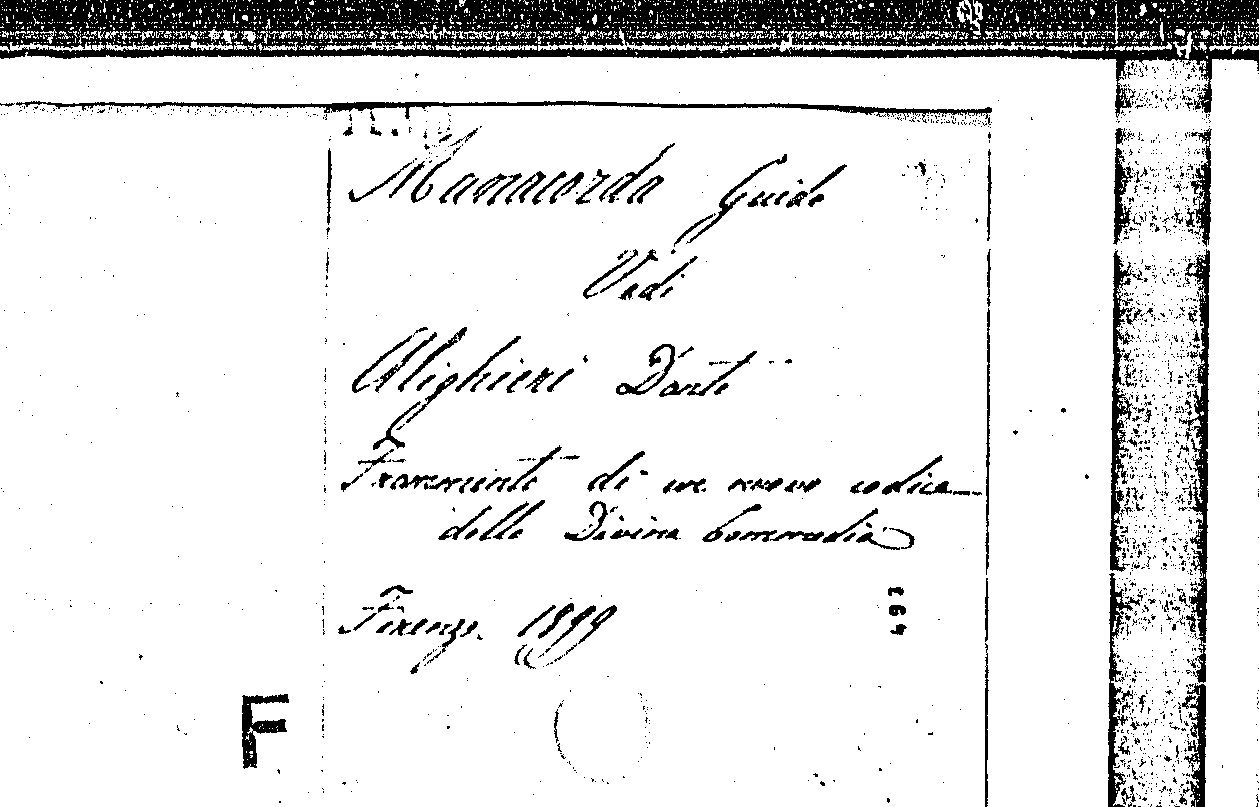 Manacorda Guido
Vedi
Alighieri Dante
Frammento di un nuovo codice
della Divina Commedia
Firenze. 1899
493
F